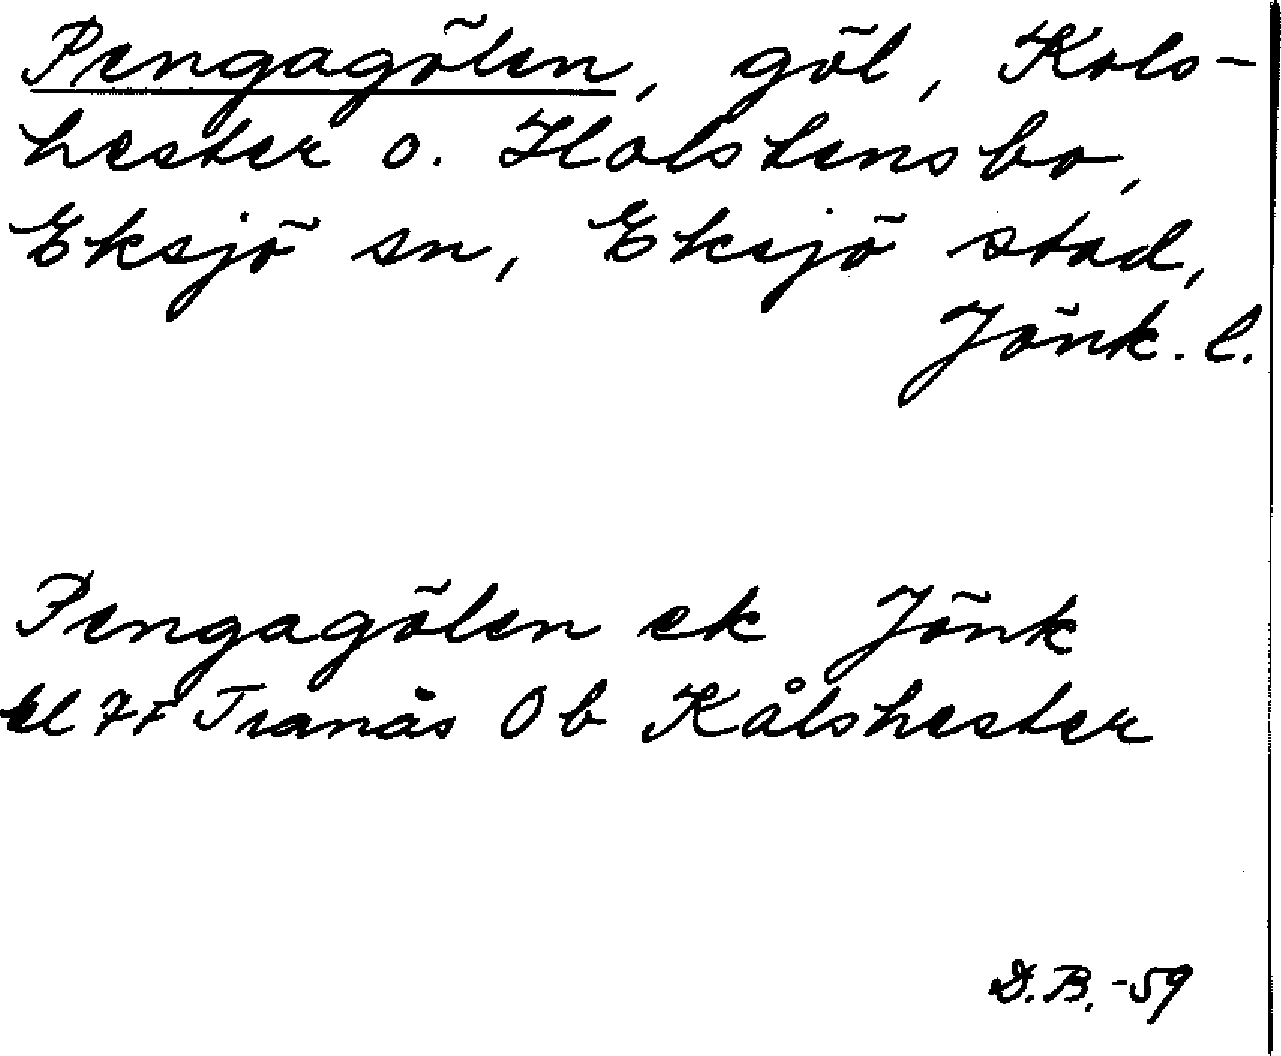 Pengagölen, göl, Kols-
hester o. Holstensbo,
Eksjö sn, Eksjö stad,
Jönk. l.
Pengagölen ek Jönk
bl 7F Tranås Ob Kålshester
D.B. -59